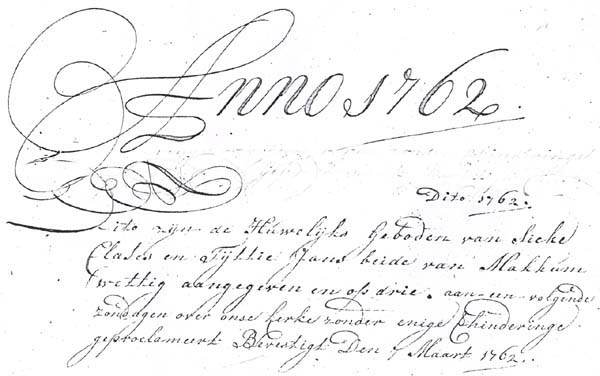 Anno 1762.
Dito 1762.
Dito zijn de Huwelijks Geboden van Sieke
Clases en Tÿttie Jans beide van Makkum
wettig aangegeven en op drie. aan-een-volgende
zondagen over onse kerke zonder enige hinderinge
geproclameert Bevestigt Den 7 Maart 1762.